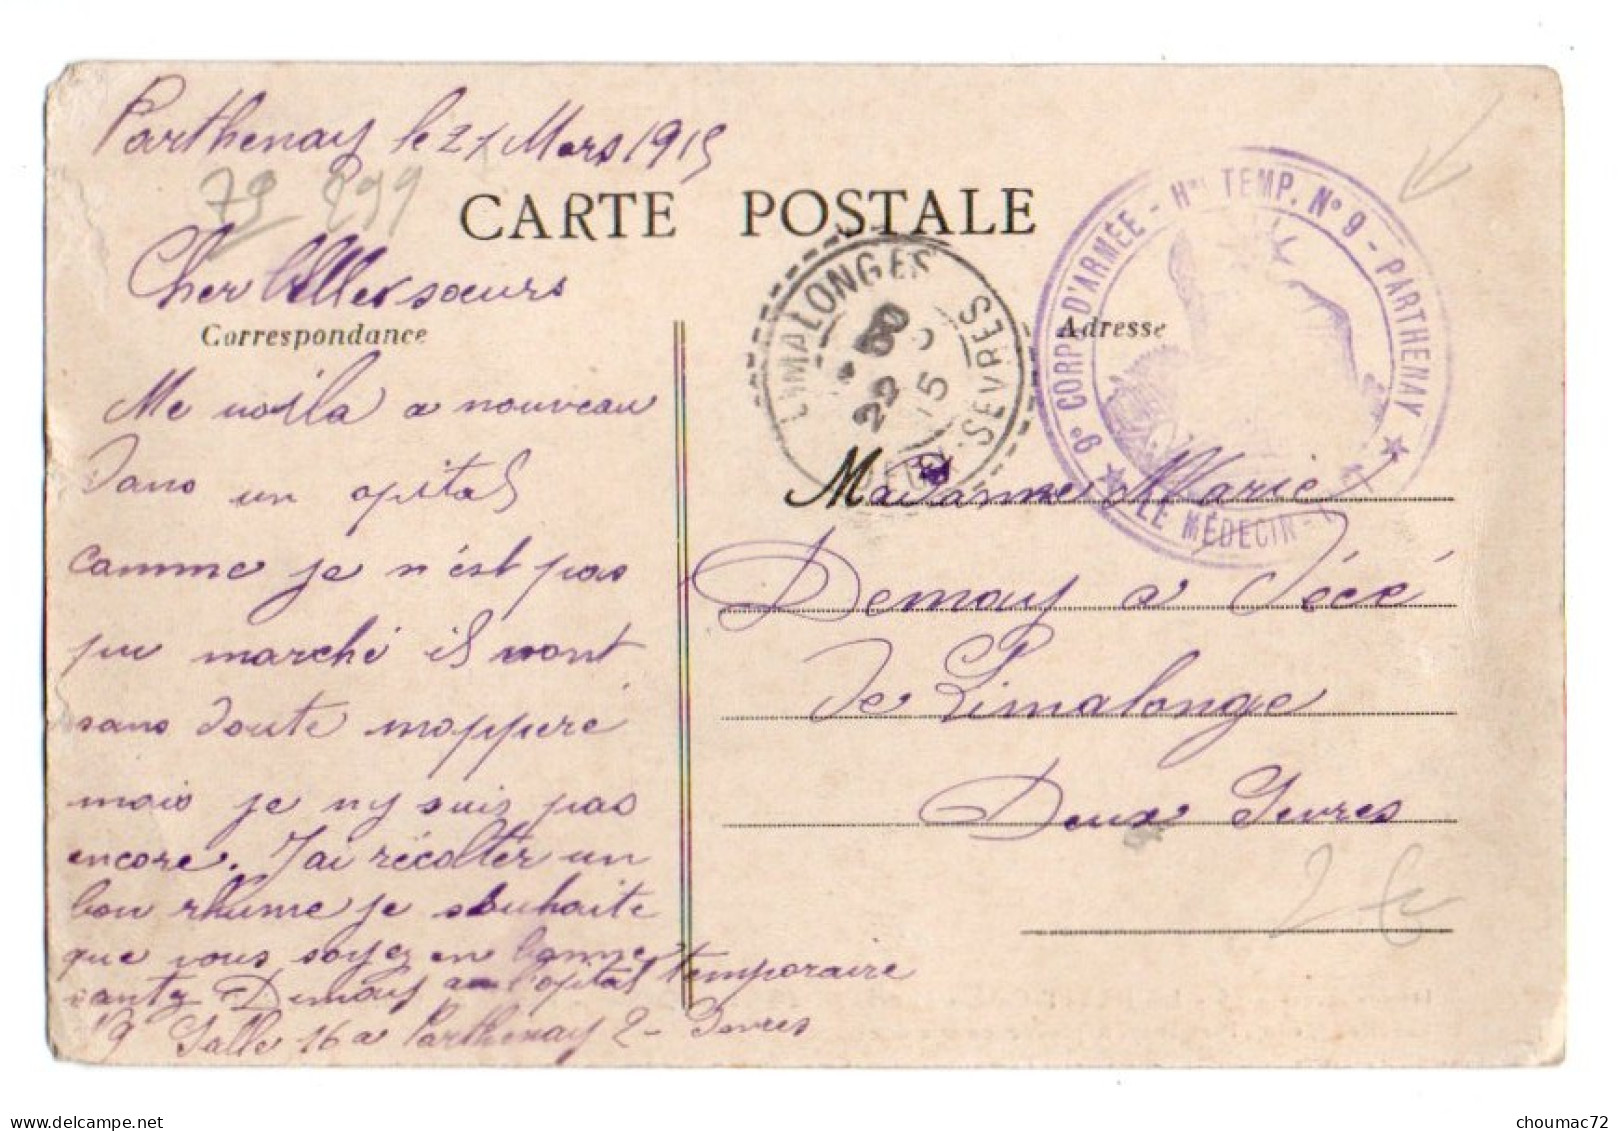 Parthenay le 21 Mars 1915
79 899
CARTE POSTALE
Cher belles sœurs
Correspondance
Me voila a nouveau
Dans un opital
comme je n'est pas
pu marché il mont
sans doute moppéré
mais je ny suis pas
encore. J'ai récolter un
bon rhume je souhaite
que vous soyez en bonne
santé Demay a l'opital temporaire
9 Salle 16 a Parthenay 2-Sevres
LIMALONGES
22
15
SEVRES
9e CORPS D'ARMÉE - Hal TEMP. No 9 - PARTHENAY
LE MÉDECIN-
Adresse
Madame Marie
Demay a
de Limalonge
Deux Sevres
2 €
choumac72